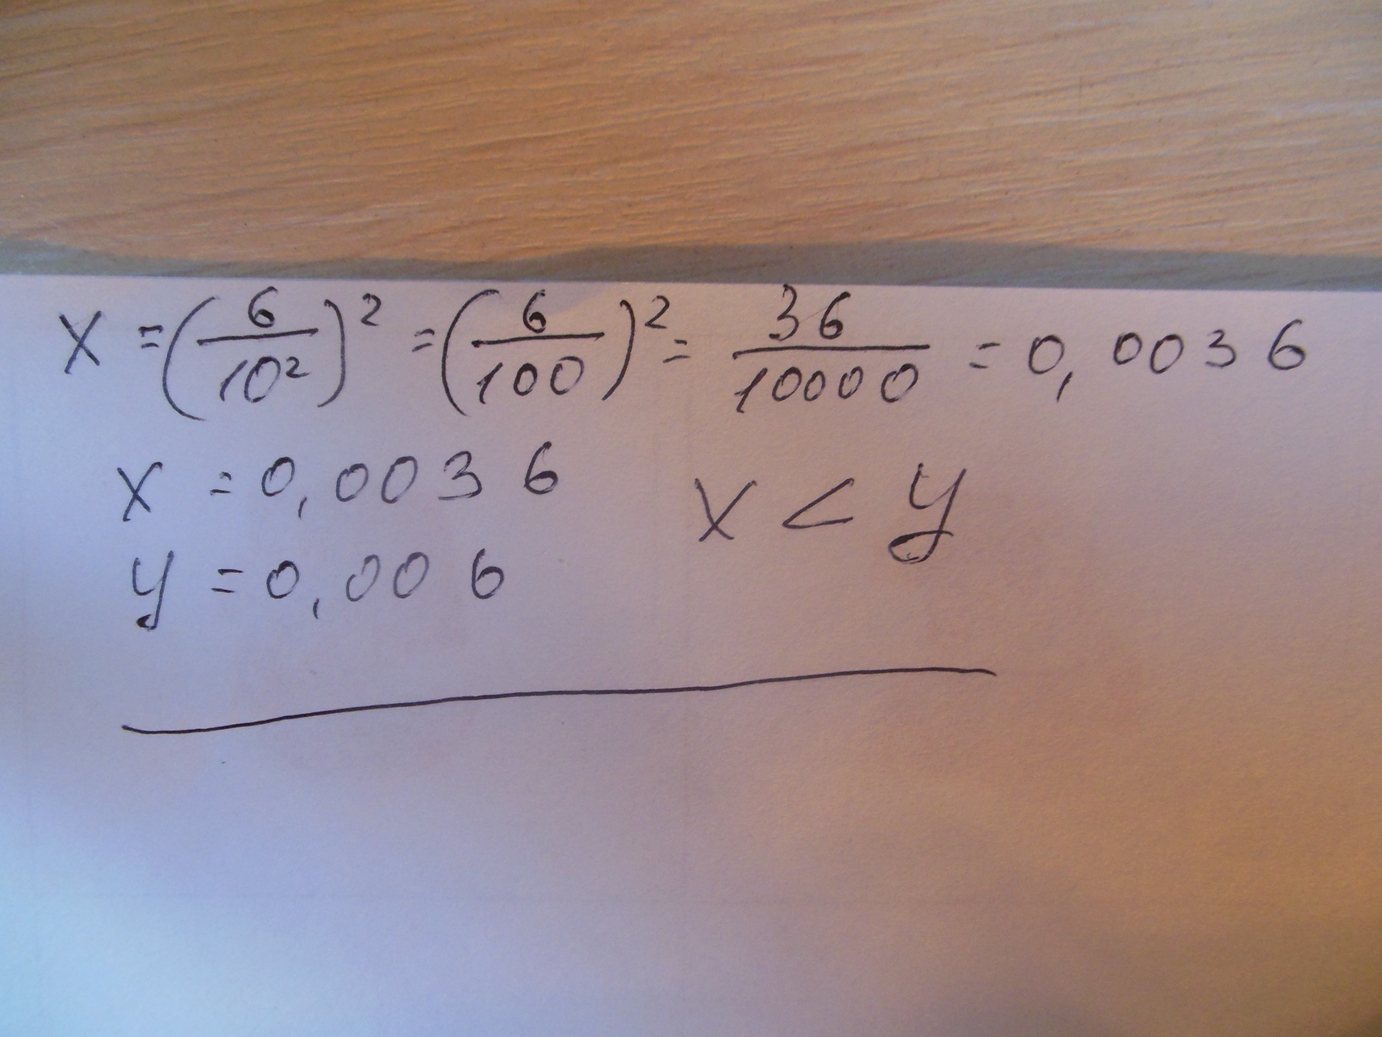 X = (6/10²)² = (6/100)² = 36/10000 = 0,0036
X = 0,0036
X < y
y = 0,006